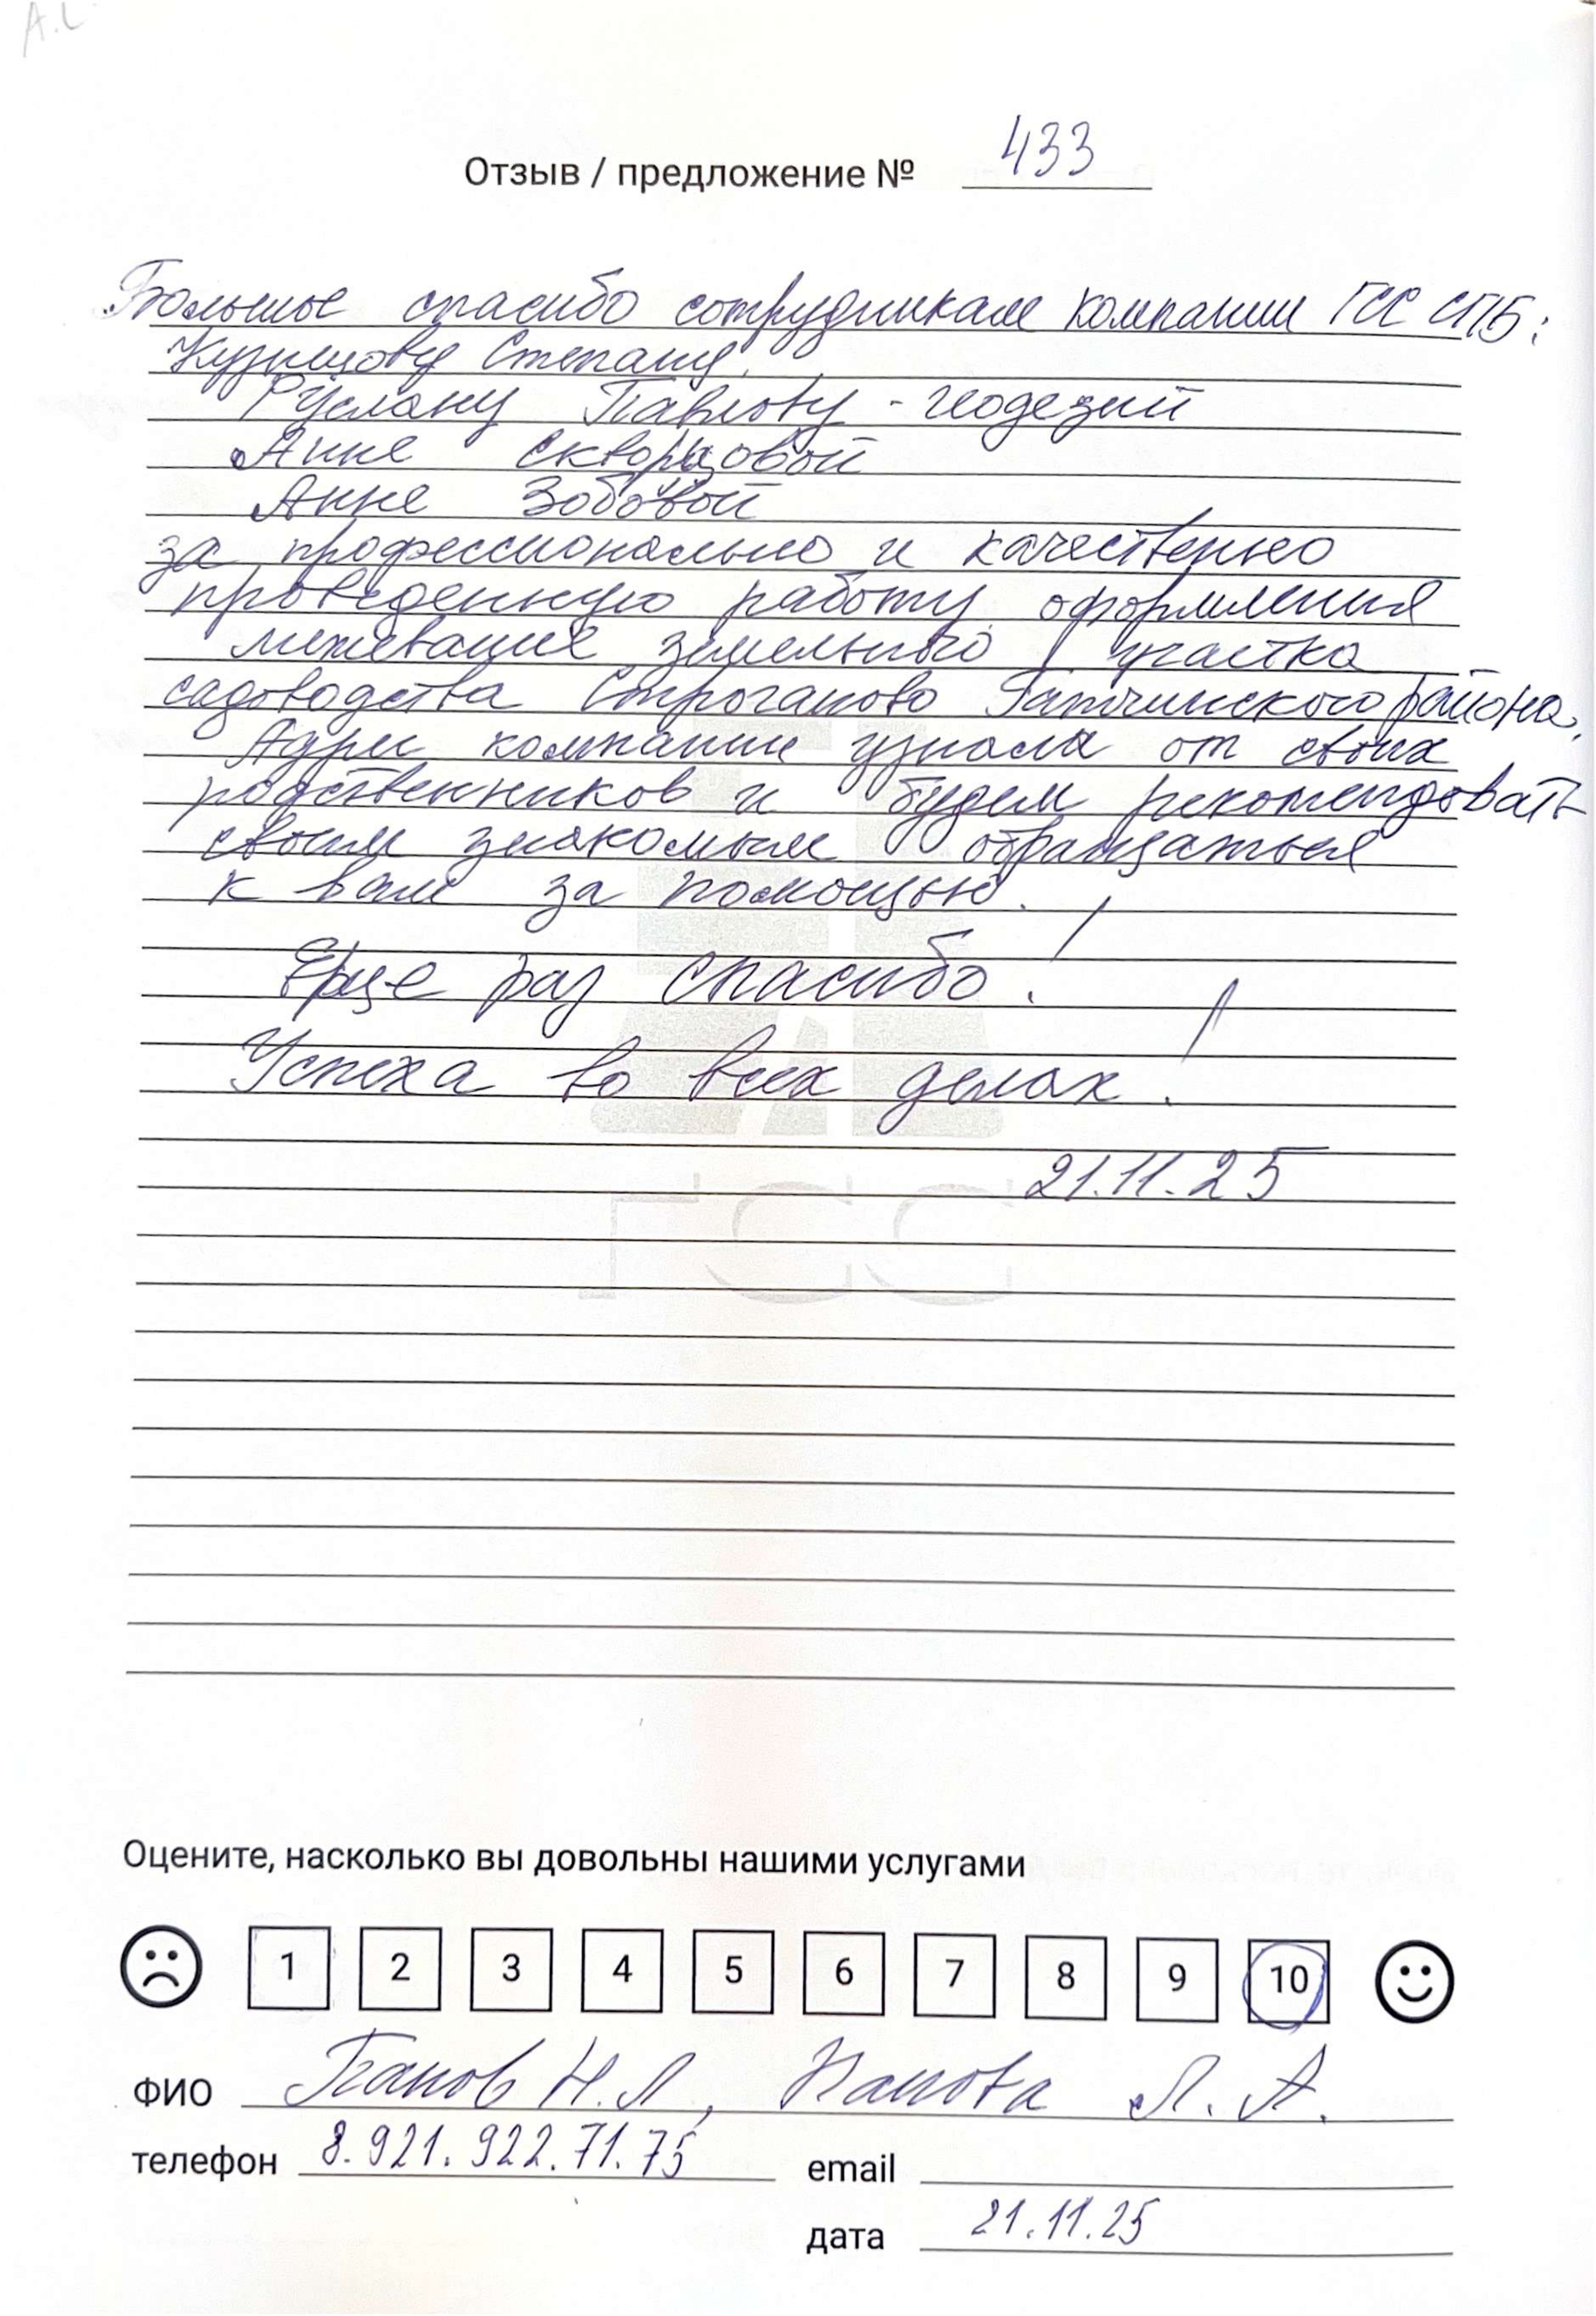 Отзыв / предложение № 433
Большое спасибо сотрудникам компании ГСС СПБ:
Кузнецову Степану,
Руслану Павлову - геодезий
Анне Скворцовой
Анне Зобовой
за профессионально и качественно
проведенную работу оформления
межевание земельного участка
садоводства Строганово Гатчинского района.
Адрес компании узнала от своих
родственников и будем рекомендовать
своим знакомым обращаться
к вам за помощью.
Еще раз спасибо!
Успеха во всех делах!
21.11.25
ГСС
Оцените, насколько вы довольны нашими услугами
1 2 3 4 5 6 7 8 9 10
ФИО Панов Н.Л, Панова Л. А.
телефон 8.921.922.71.75 email
дата 21.11.25